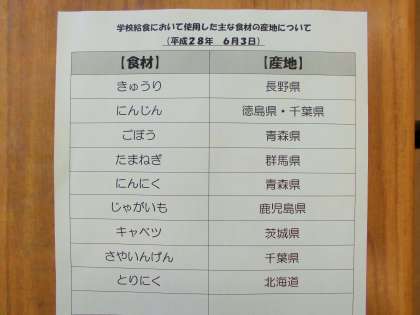 学校給食において使用した主な食材の産地について
(平成28年 6月3日)
【食材】 【産地】
きゅうり 長野県
にんじん 徳島県・千葉県
ごぼう 青森県
たまねぎ 群馬県
にんにく 青森県
じゃがいも 鹿児島県
キャベツ 茨城県
さやいんげん 千葉県
とりにく 北海道